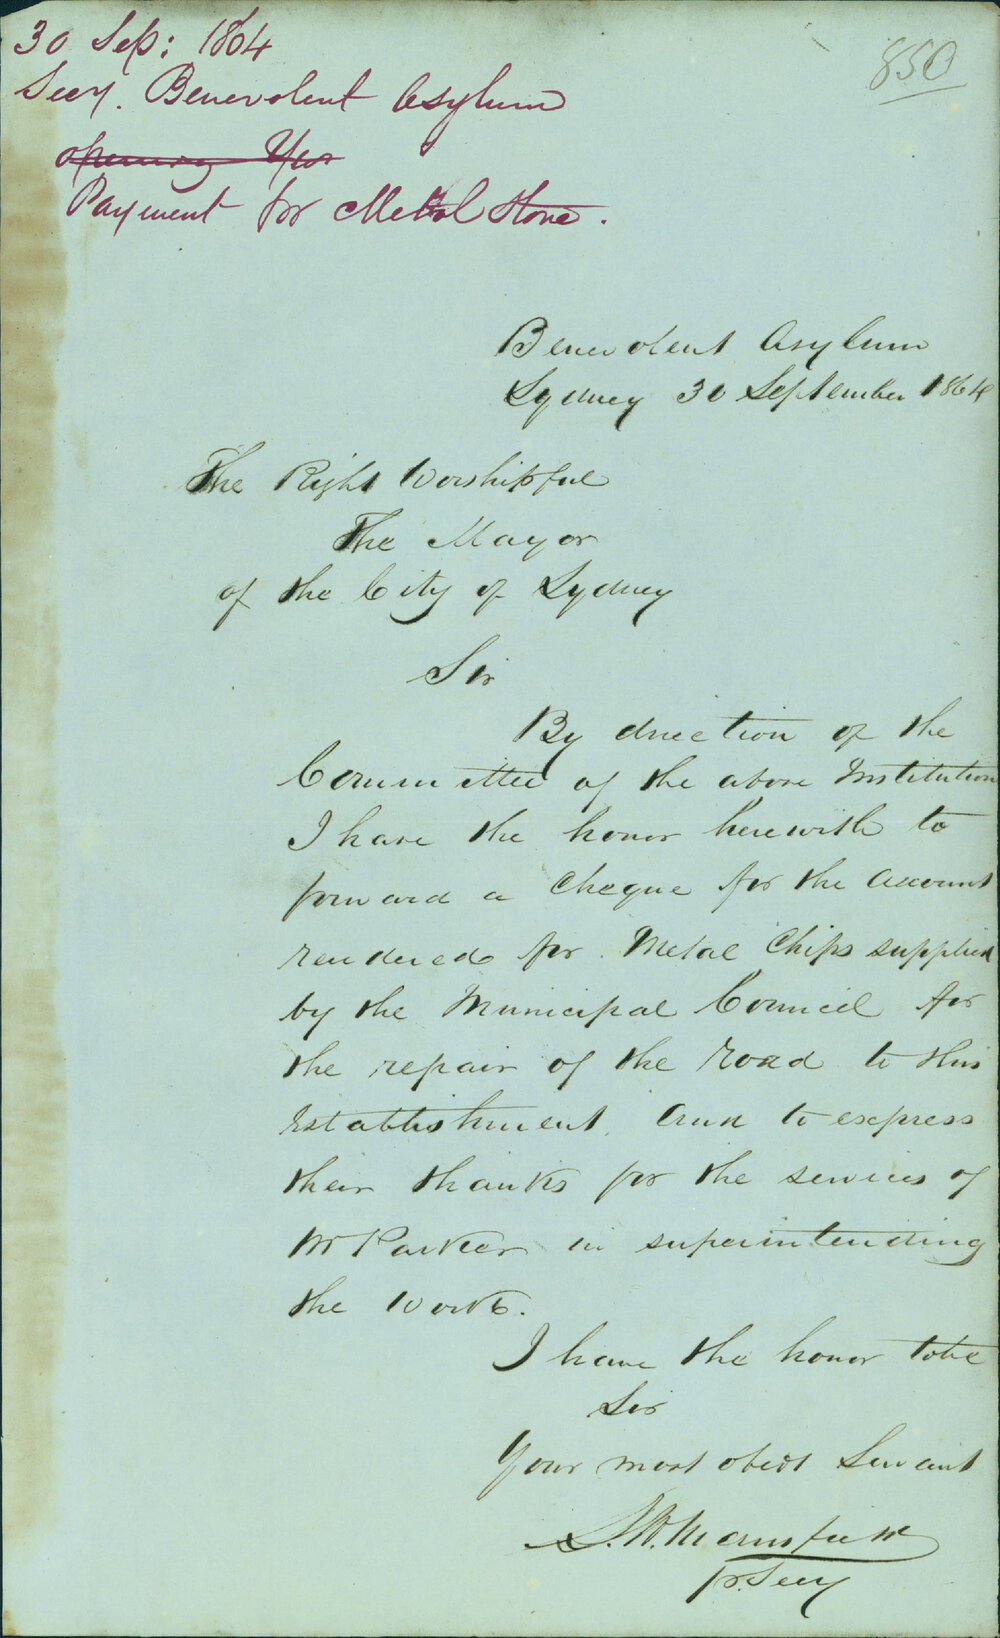 30 Sep: 1864
850
Secy. Benevolent Asylum
opening Yar
Payment for Metal Stone.
Benevolent Asylum
Sydney 30 September 1864
The Right Worshipful
The Mayor
of the City of Sydney
Sir
By direction of the
Committee of the above Institution
I have the honor herewith to
forward a Cheque for the account
rendered for Metal Chips supplied
by the Municipal Council for
the repair of the Road to this
Establishment, and to express
their thanks for the services of
Mr Parker in superintending
the Work.
I have the honor to be
Sir
Your most obedt Servant
S. W. Mansfield
pr. Secy